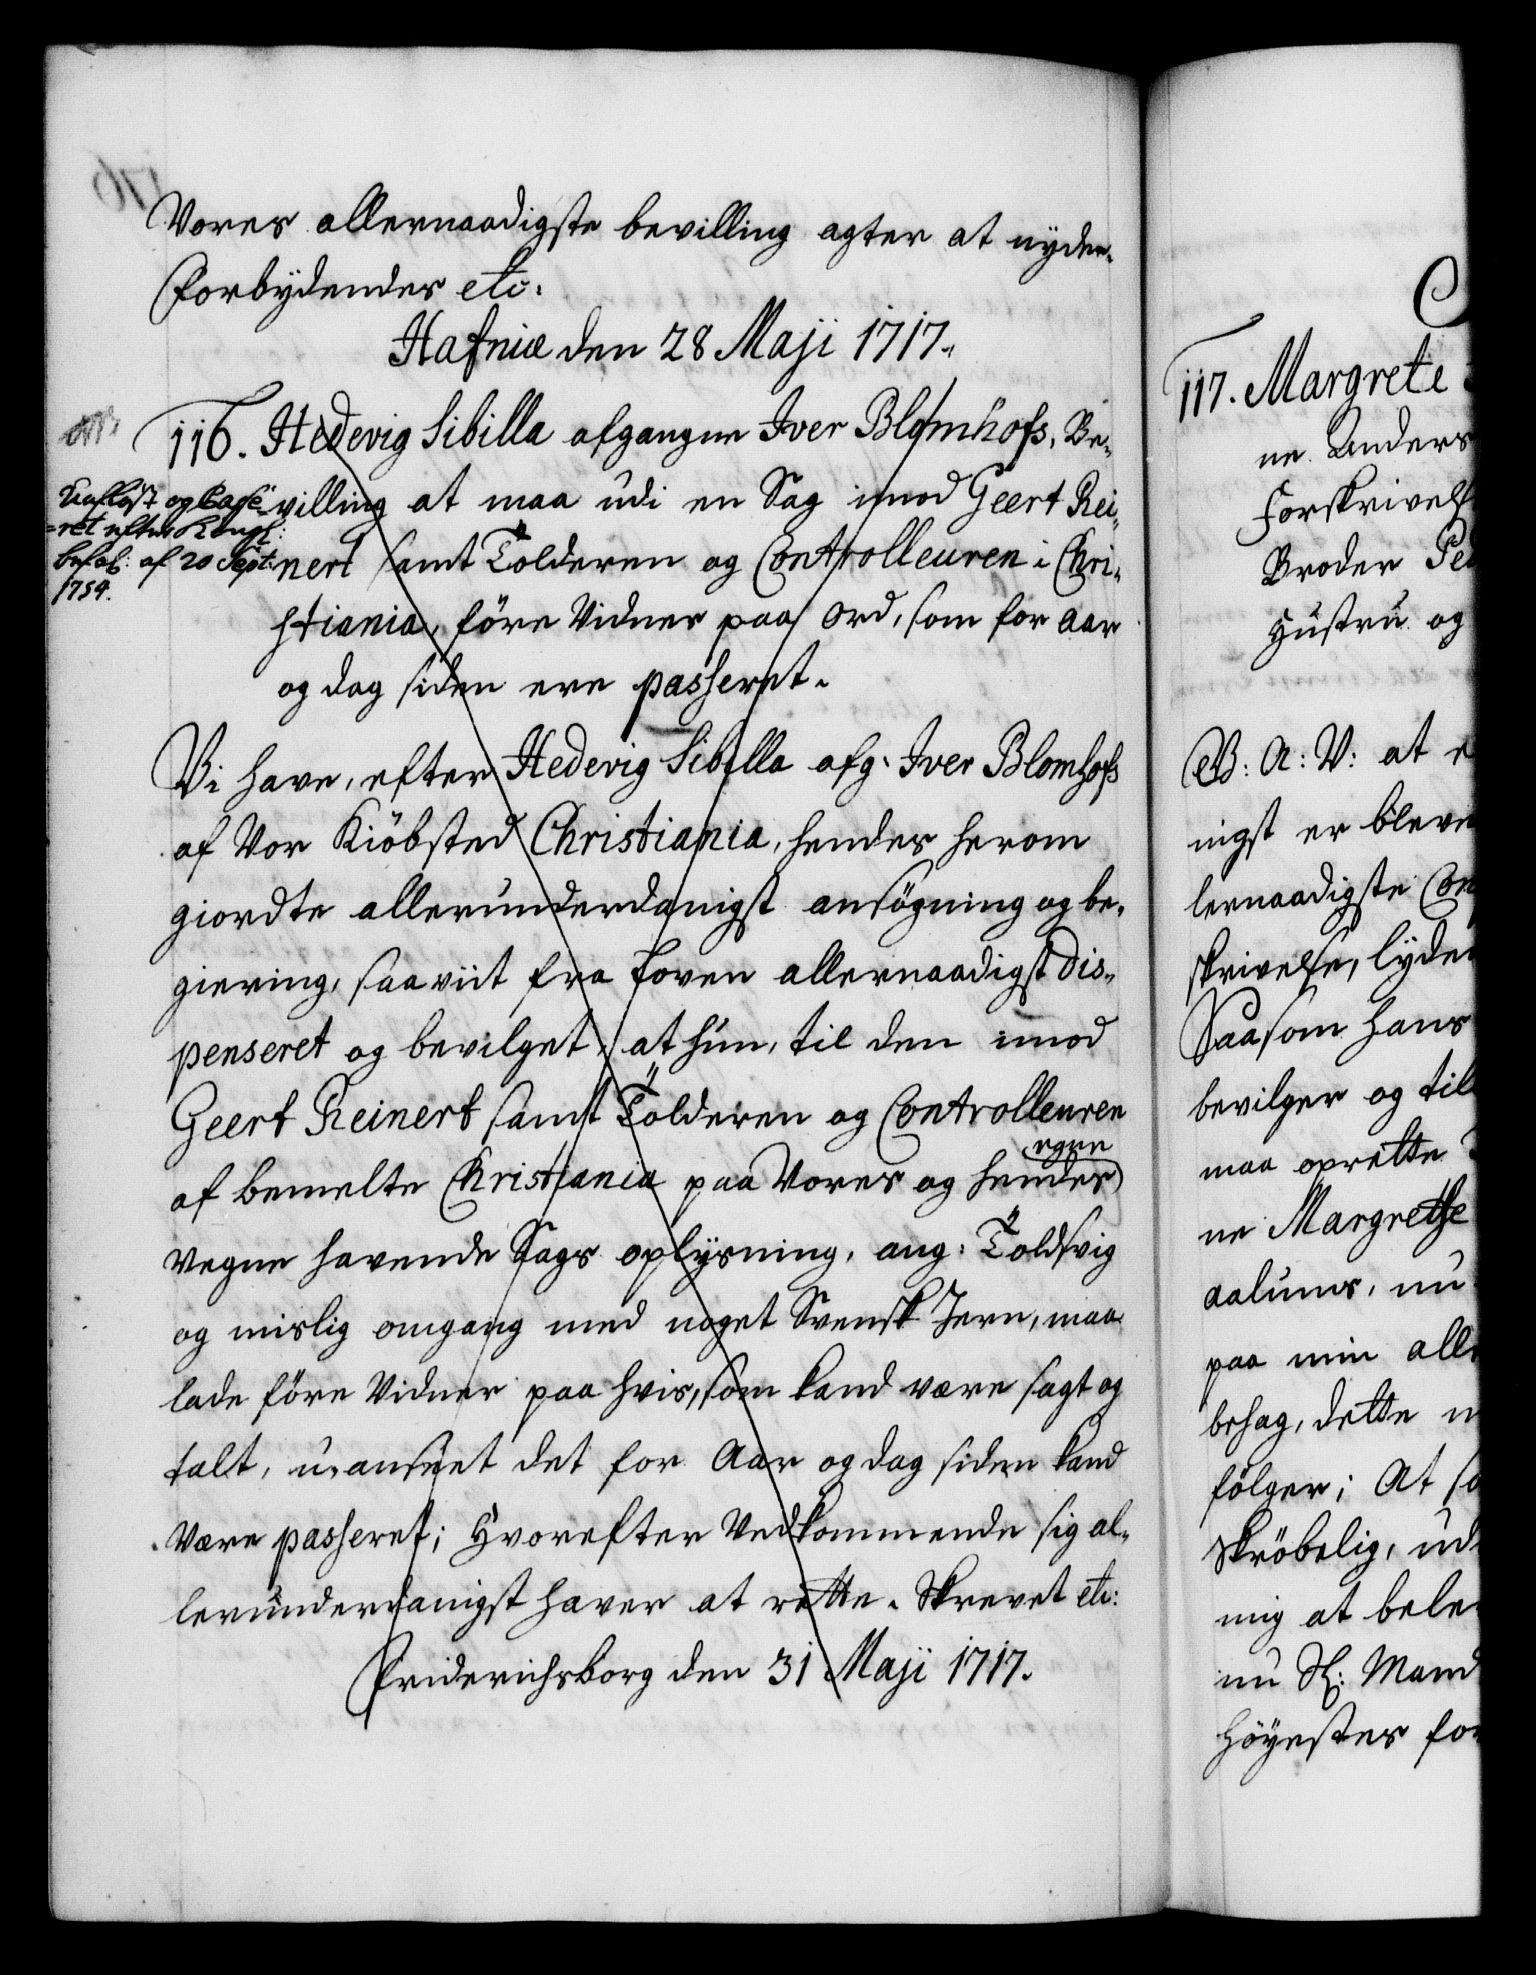 Vores allernaadigste bevilling agter at nyde.
Forbydendes etc:
Hafniæ den 28 Maji 1717.
116. Hedevig Sibilla afgangne Iver Blomhofs, Be-
villing at maa udi en Sag imod Geert Rei-
nert samt Tolderen og Controlleuren i Chri-
stiania, före Vidner paa Ord, som for Aar
og dag siden ere passeret.
Uaflöst og Casse-
=ret efter Kongl:
befal: af 20 Sept:
1754.
Vi have, efter Hedevig Sibilla afg. Iver Blomhofs
af Vor Kiöbsted Christiania, hendes herom
giordte allerunderdanigst ansögning og be-
giering, saaviit fra Loven allernaadigst dis-
penseret og bevilget, at hun, til den imod
Geert Reinert samt Tolderen og Controlleuren
af bemelte Christiania paa Vores og hendes
egne
Vegne havende Sags oplysning, ang: Toldsvig
og mislig omgang med noget Svensk Jern, maa
lade före Vidner paa hvis, som kand være sagt og
talt, u-anseet det for Aar og dag siden kand
være passeret; Hvorefter Vedkommende sig al-
lerunderdanigst haver at rette. Skrevet etc:
Friderichsborg den 31 Maji 1717.
117. Margrete
ne Anders
Forskrivels
Broder Pe
Hustru og
G: A: V: at
nigst er bleve
lernaadigste Con
skrivelse, lyde
Saasom hans
bevilger og til
maa oprette
ne Margrethe
aalunds, nu
paa min alle
behag, dette
fölger; At
skröbelig, ud
mig at bele
nu Sl: Mand
höyestes for